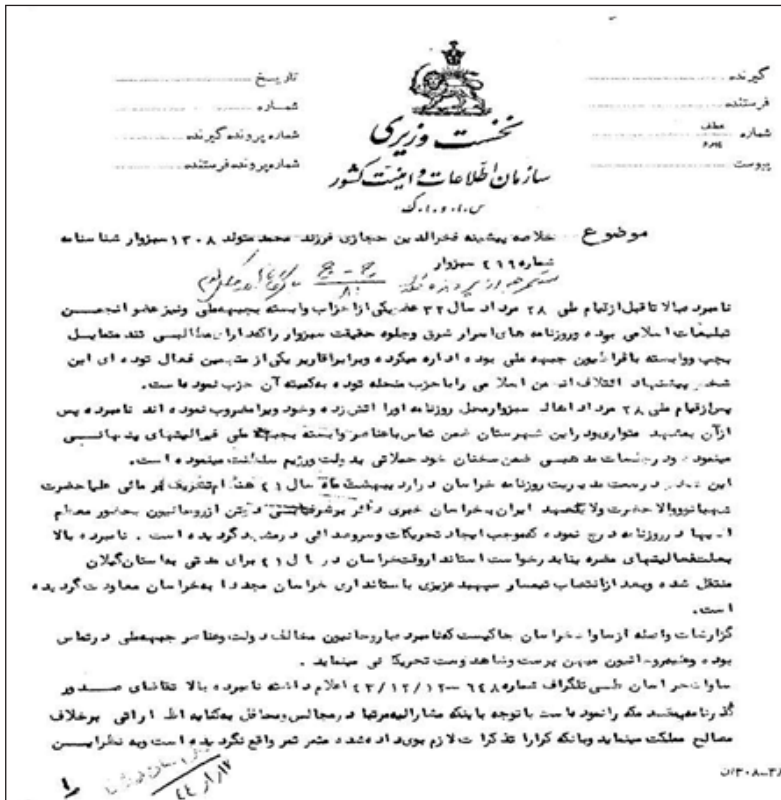 گیرنده
فرستنده
شماره عطف
پیوست
تاریخ
شماره
شماره پرونده گیرنده
شماره پرونده فرستنده
نخست وزیری
سازمان اطلاعات و امنیت کشور
س.ا.و.ا.ک
موضوع خلاصه پیشینه فخرالدین حجازی فرزند محمد متولد ۱۳۰۸ سبزوار شناسنامه
شماره ۲۱۹ سبزوار
نامبرده بالا تا قبل از قیام ملی ۲۸ مرداد سال ۳۲ عضو یکی از احزاب وابسته بجبهه ملی و نیز عضو انجمن
تبلیغات اسلامی بوده و روزنامه های اسرار شرق و جلوه حقیقت سبزوار را که دارای مطالبی تند متمایل
بچپ و وابسته بافراکسیون جبهه ملی بوده اداره میکرده و برابر اقاریر یکی از متهمین فعال توده ای این
شخص پیشنهاد ائتلاف انجمن اسلامی را با حزب منحله توده به کمیته آن حزب نموده است.
پس از قیام ملی ۲۸ مرداد اهالی سبزوار محل روزنامه او را آتش زده و خود ویرا مضروب نموده اند نامبرده پس
از آن بمشهد متواری و در این شهرستان ضمن تماس با عناصر وابسته بجبهه ملی فعالیتهای پنهانی
مینموده و در جلسات مذهبی ضمن سخنان خود حملاتی بدولت و رژیم سلطنت مینموده است.
این شخص در سمت مدیریت روزنامه خراسان در اردیبهشت ماه سال ۴۱ هنگام تشریف فرمائی علیاحضرت
شهبانو و والاحضرت ولایتعهد ایران بخراسان خبری دائر بر شرفیابی تن از روحانیون بحضور معظم
الیها در روزنامه درج نموده که موجب ایجاد تحریکات و سروصدائی در مشهد گردیده است . نامبرده بالا
بعلت فعالیتهای مضره بنابدرخواست استاندار وقت خراسان در سال ۴۱ برای مدتی به استان گیلان
منتقل شده و بعد از انتصاب تیمسار سپهبد عزیزی باستانداری خراسان مجددا بخراسان معاودت گردیده
است.
گزارشات واصله از ساواک خراسان حاکیست که نامبرده با روحانیون مخالف دولت و عناصر جبهه ملی در تماس
بوده و علیه روحانیون میهن پرست و شاهدوست تحریکاتی مینماید .
ساواک خراسان طی تلگراف شماره ۶۴۸ - ۴۲/۱۲/۱۲ اعلام داشته نامبرده بالا تقاضای صدور
گذرنامه بمقصد مکه را نموده است با توجه باینکه مشارالیه مرتبا در مجالس و محافل به کنایه اظهاراتی برخلاف
مصالح مملکت مینماید و باینکه کرارا تذکرات لازم بوی داده شده مثمر ثمر واقع نگردیده است و به نظر این
۱